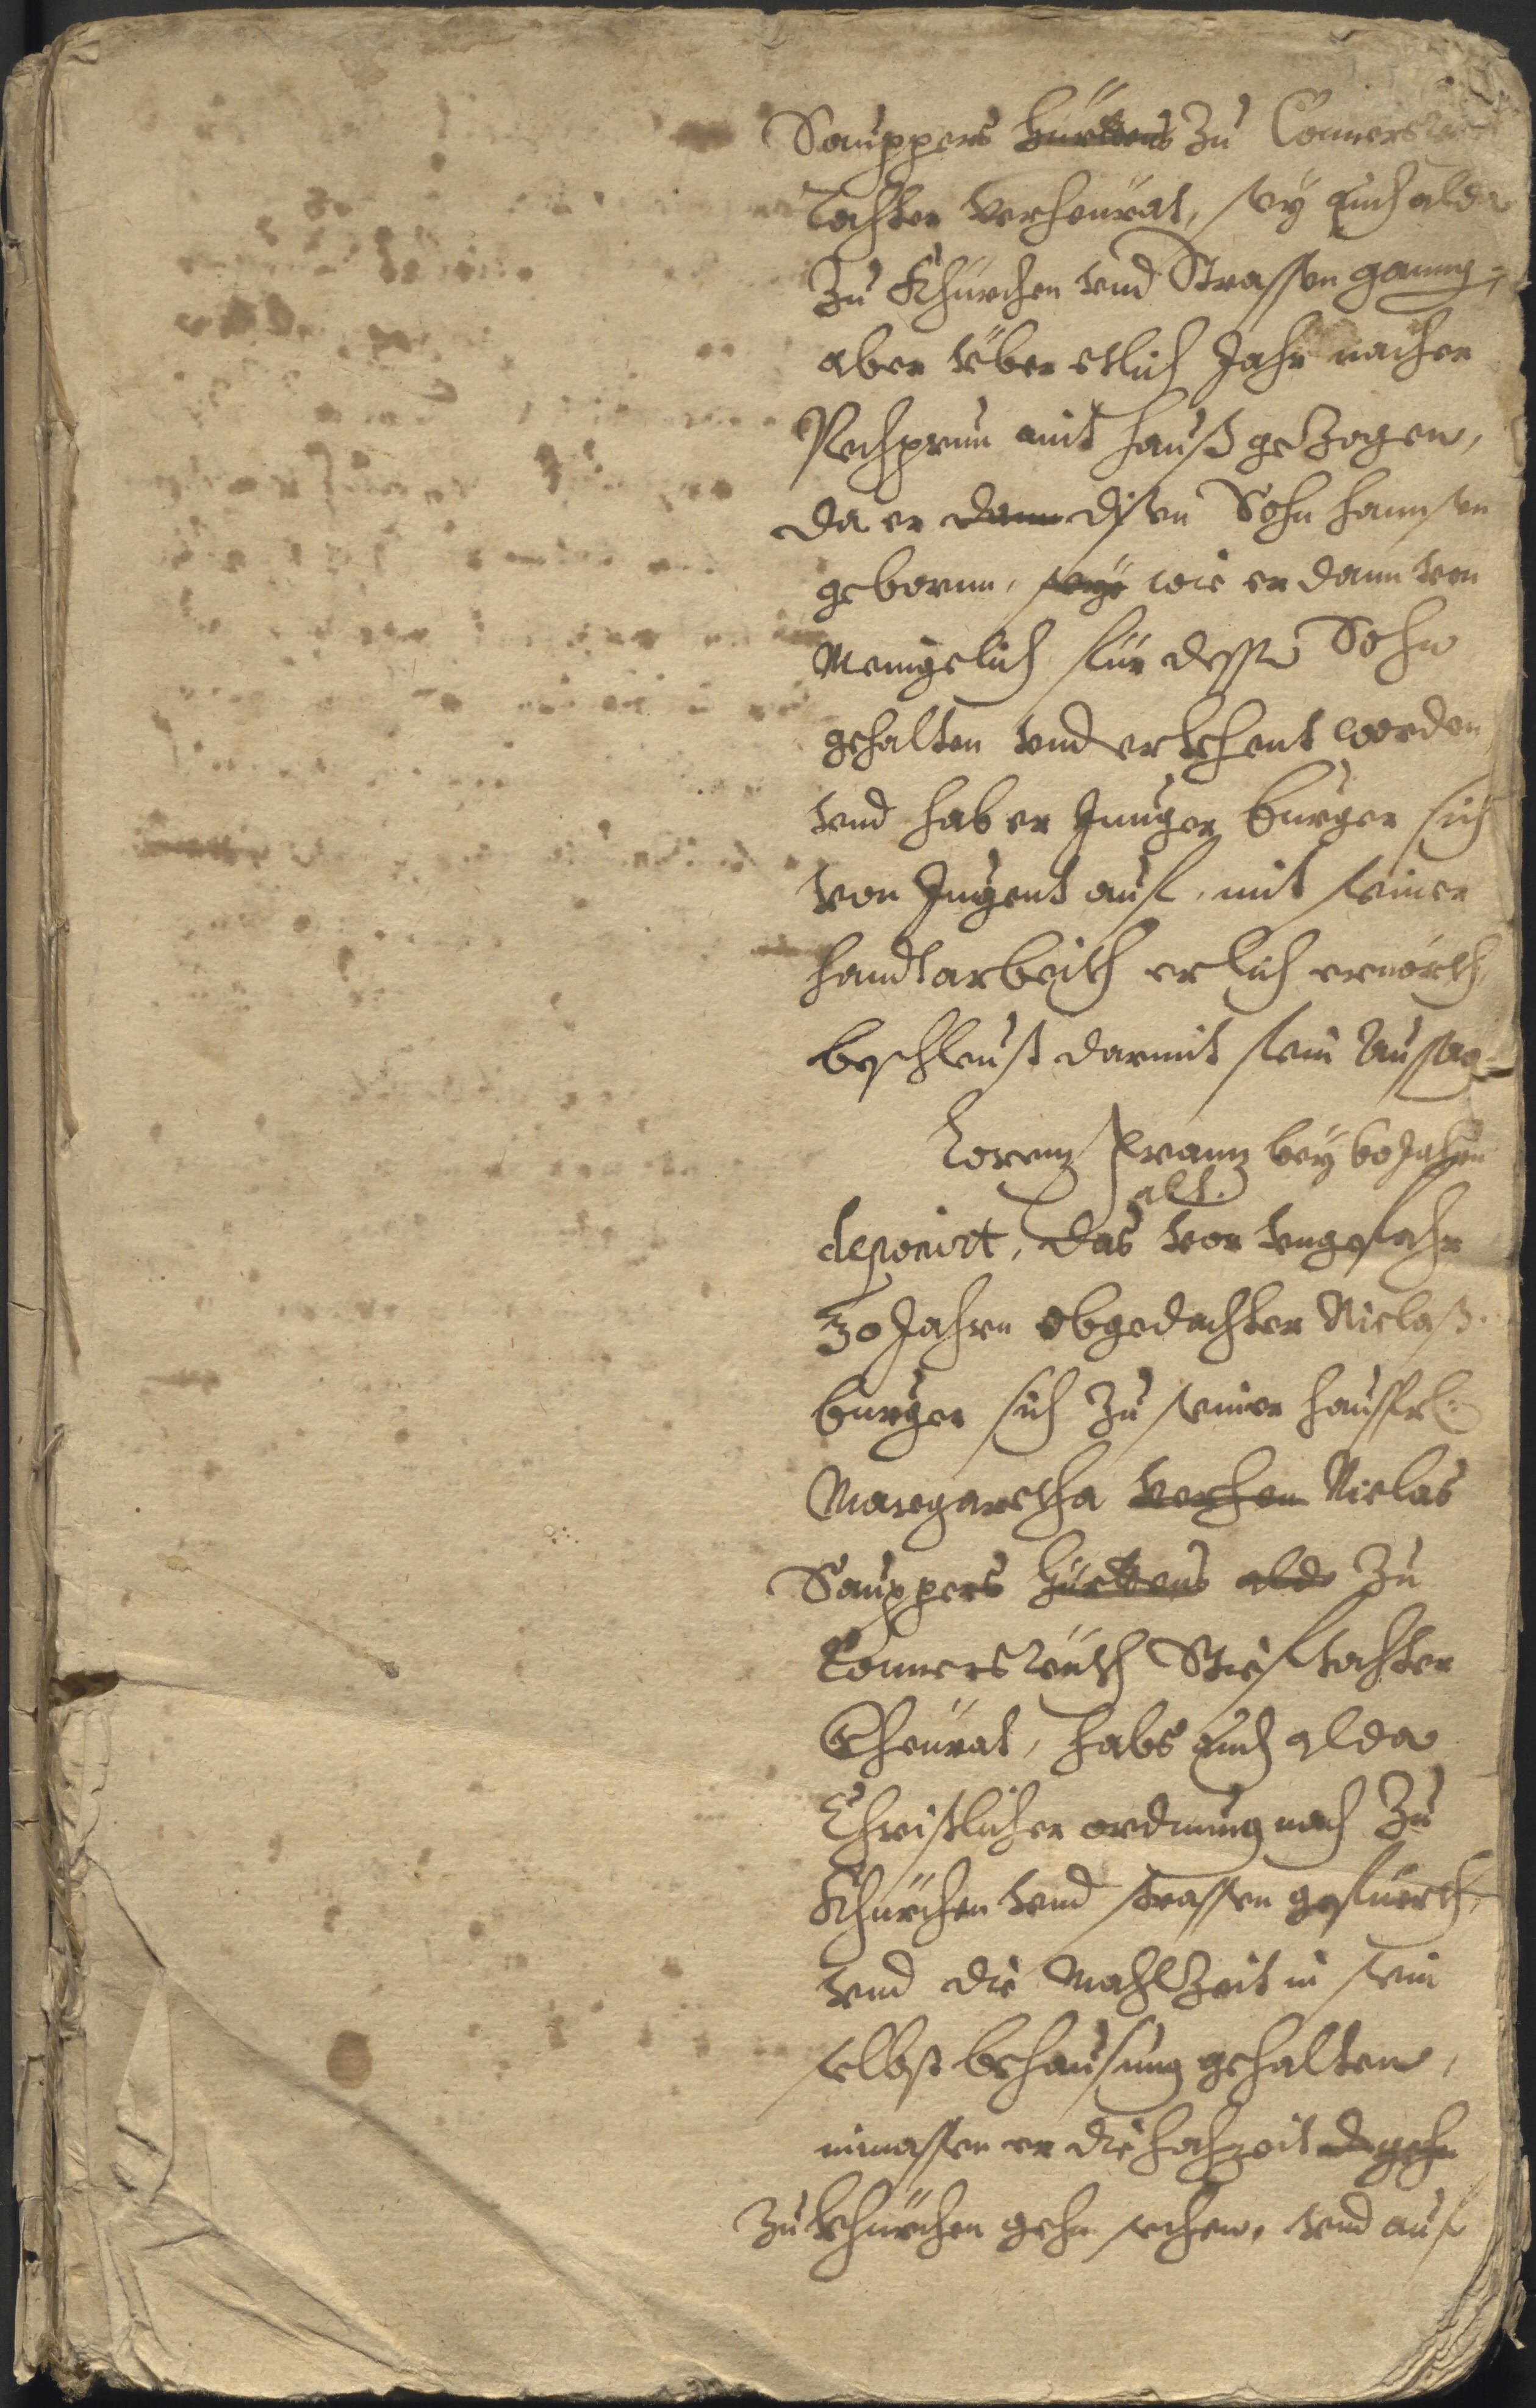 Sauppers Hürttens Zu Connersreuth
Tochter verheurat, sey auch alda
Zu Khürchen vnd Strassen ganng,
aber über etlich Jahr nacher
Pechprun mit hauß geZogen,
da er dann disen Sohn hannsen
gebornn, seye wie er dann von
Menigelich für dessen Sohn
gehalten vnd erkhent worden
vnd hab er Junger burger sich
von Jugent auf, mit seiner
handtarbeith erlich ernörth,
beschleust darmit sein Aussag
Lorenz Franz bey 60 Jahren
alt.
deponirt, das vor vngefahr
30 Jahren obgedachter Niclaß
burger sich Zu seiner haussfr:
Margaretha verheu Niclas
Sauppers Hürttens alda Zu
Connersreuth Stieftochter
Eheurat, habs auch alda
Christlicher ordnung nach Zu
Khürchen vnd strassen gefüerth,
vnd die MahlZeit in sein
selbst behausung gehalten,
inmassen er die hochzeit gehn
Zu khürchen gehn sehen, vnd auf